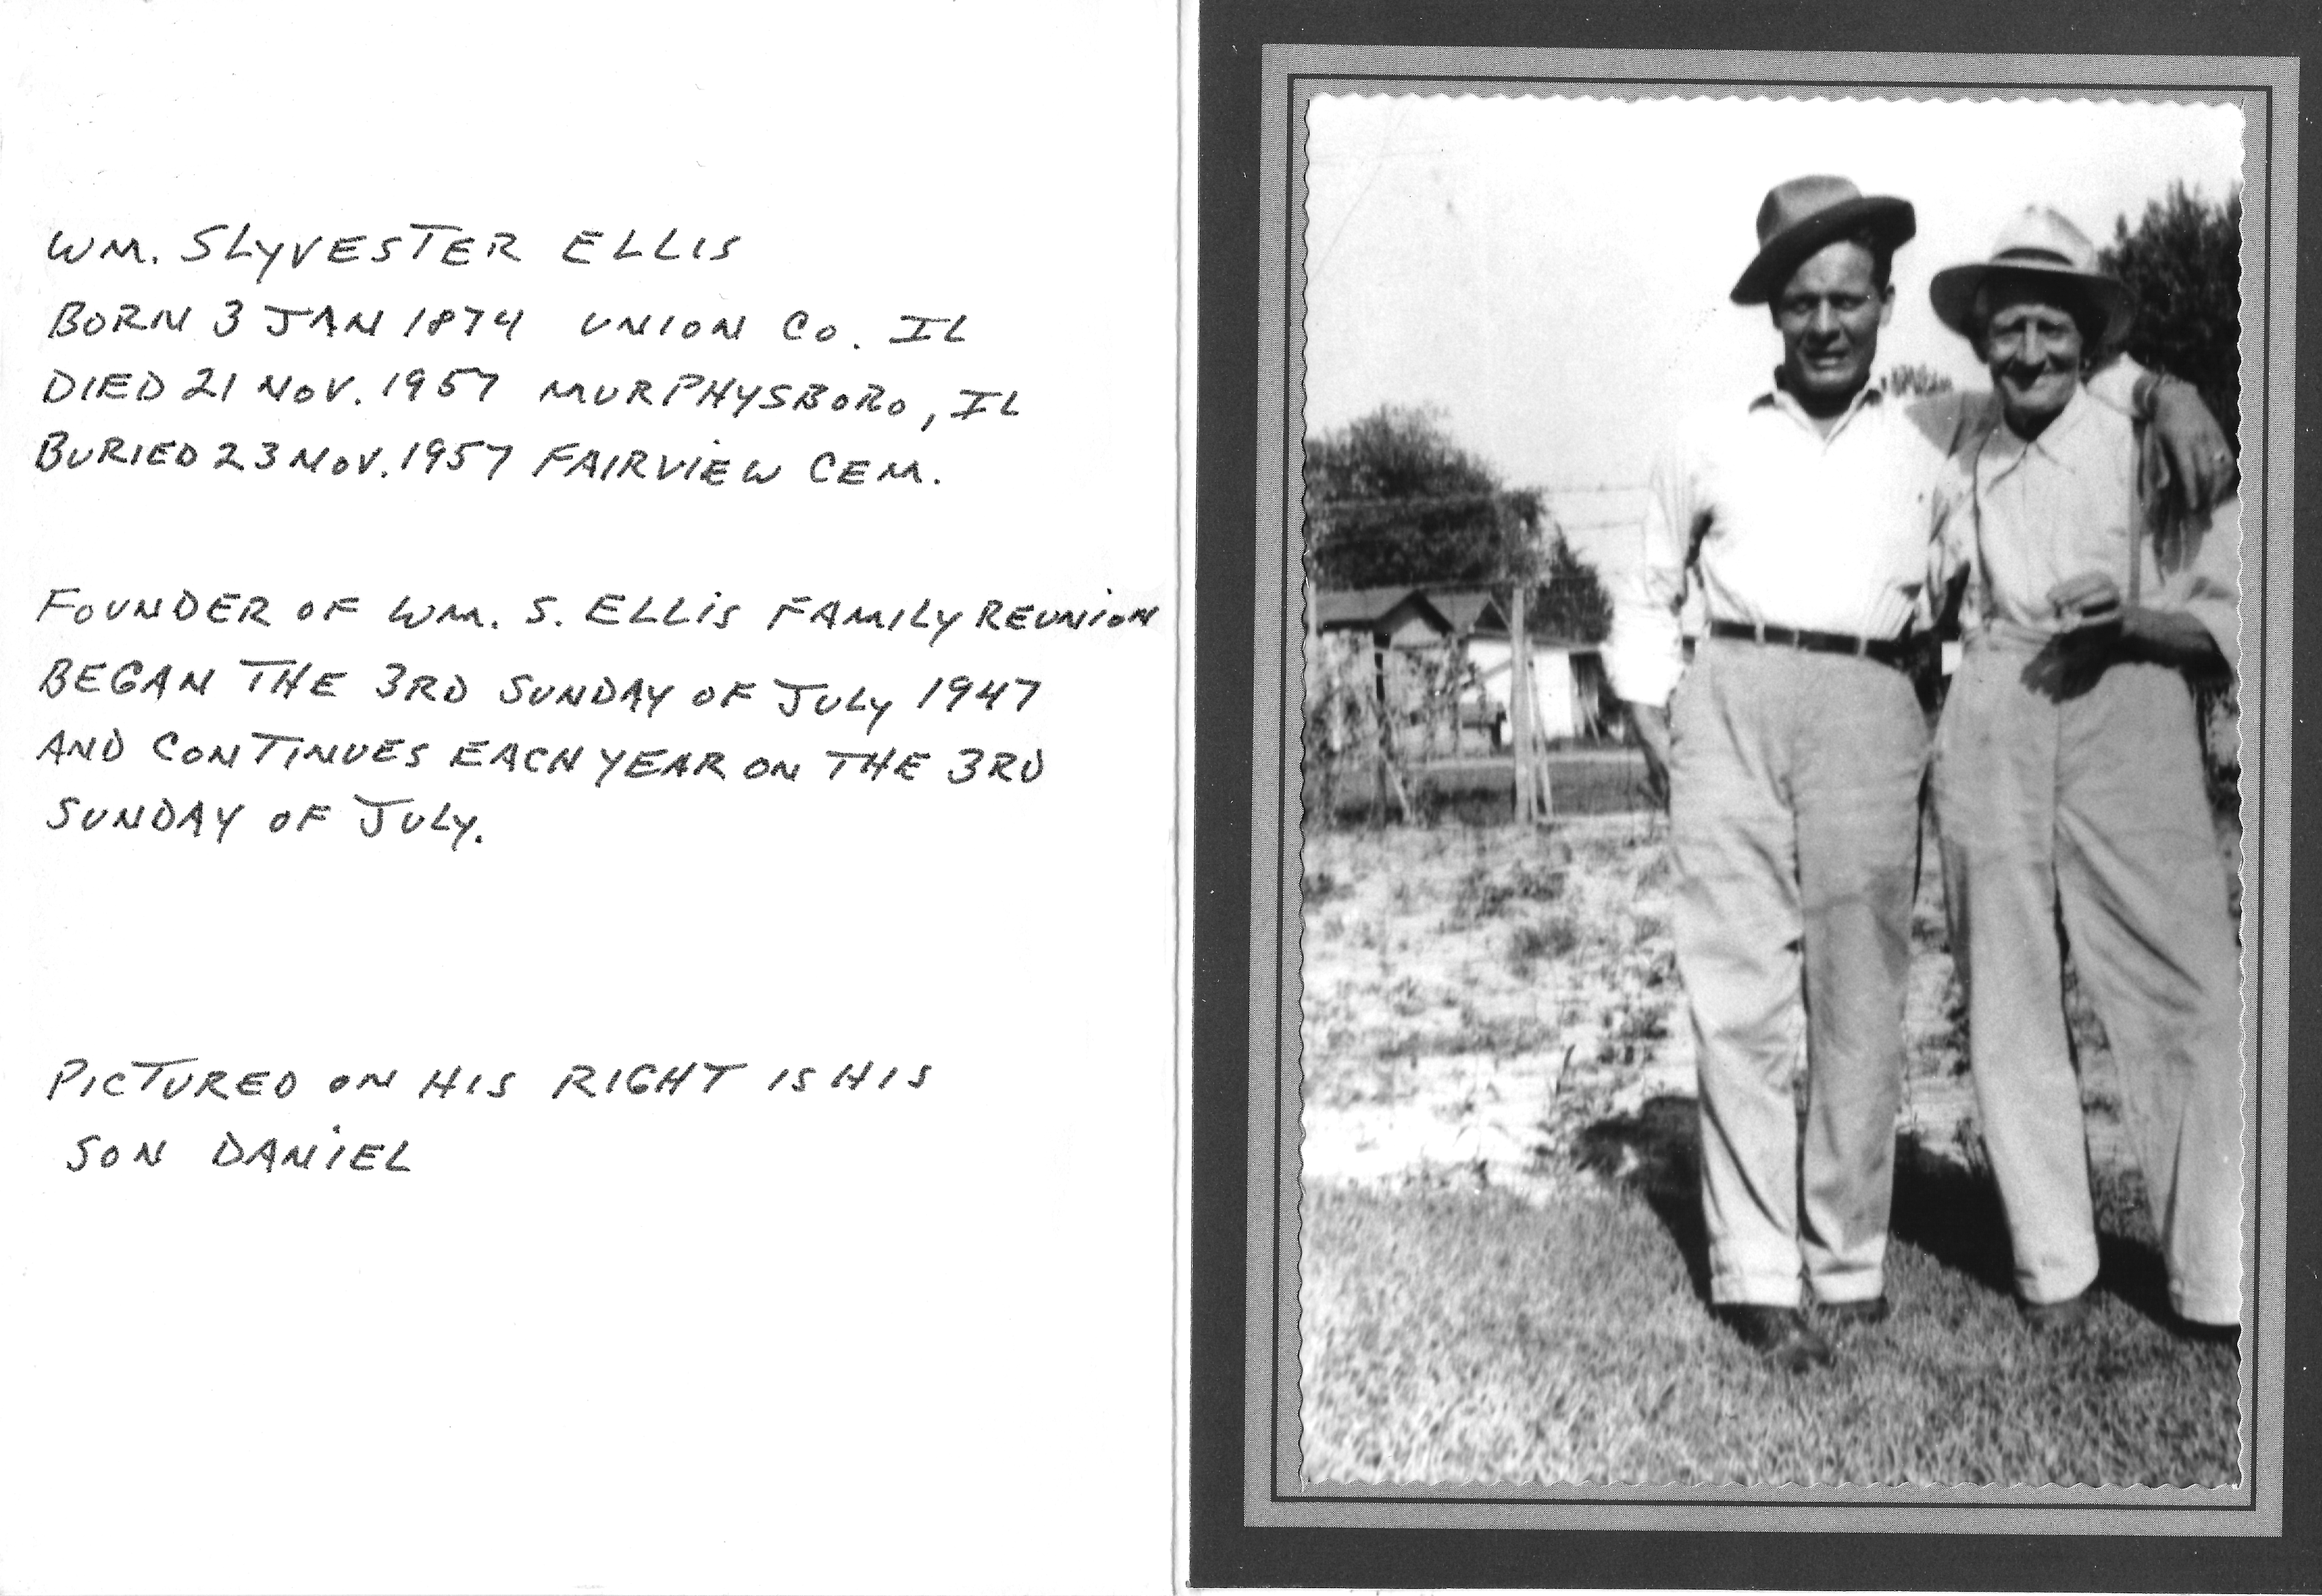 WM. SLYVESTER ELLIS
BORN 3 JAN 1874 UNION CO. IL
DIED 21 NOV. 1957 MURPHYSBORO, IL
BURIED 23 NOV. 1957 FAIRVIEW CEM.
FOUNDER OF WM. S. ELLIS FAMILY REUNION
BEGAN THE 3RD SUNDAY OF JULY 1947
AND CONTINUES EACH YEAR ON THE 3RD
SUNDAY OF JULY.
PICTURED ON HIS RIGHT IS HIS
SON DANIEL